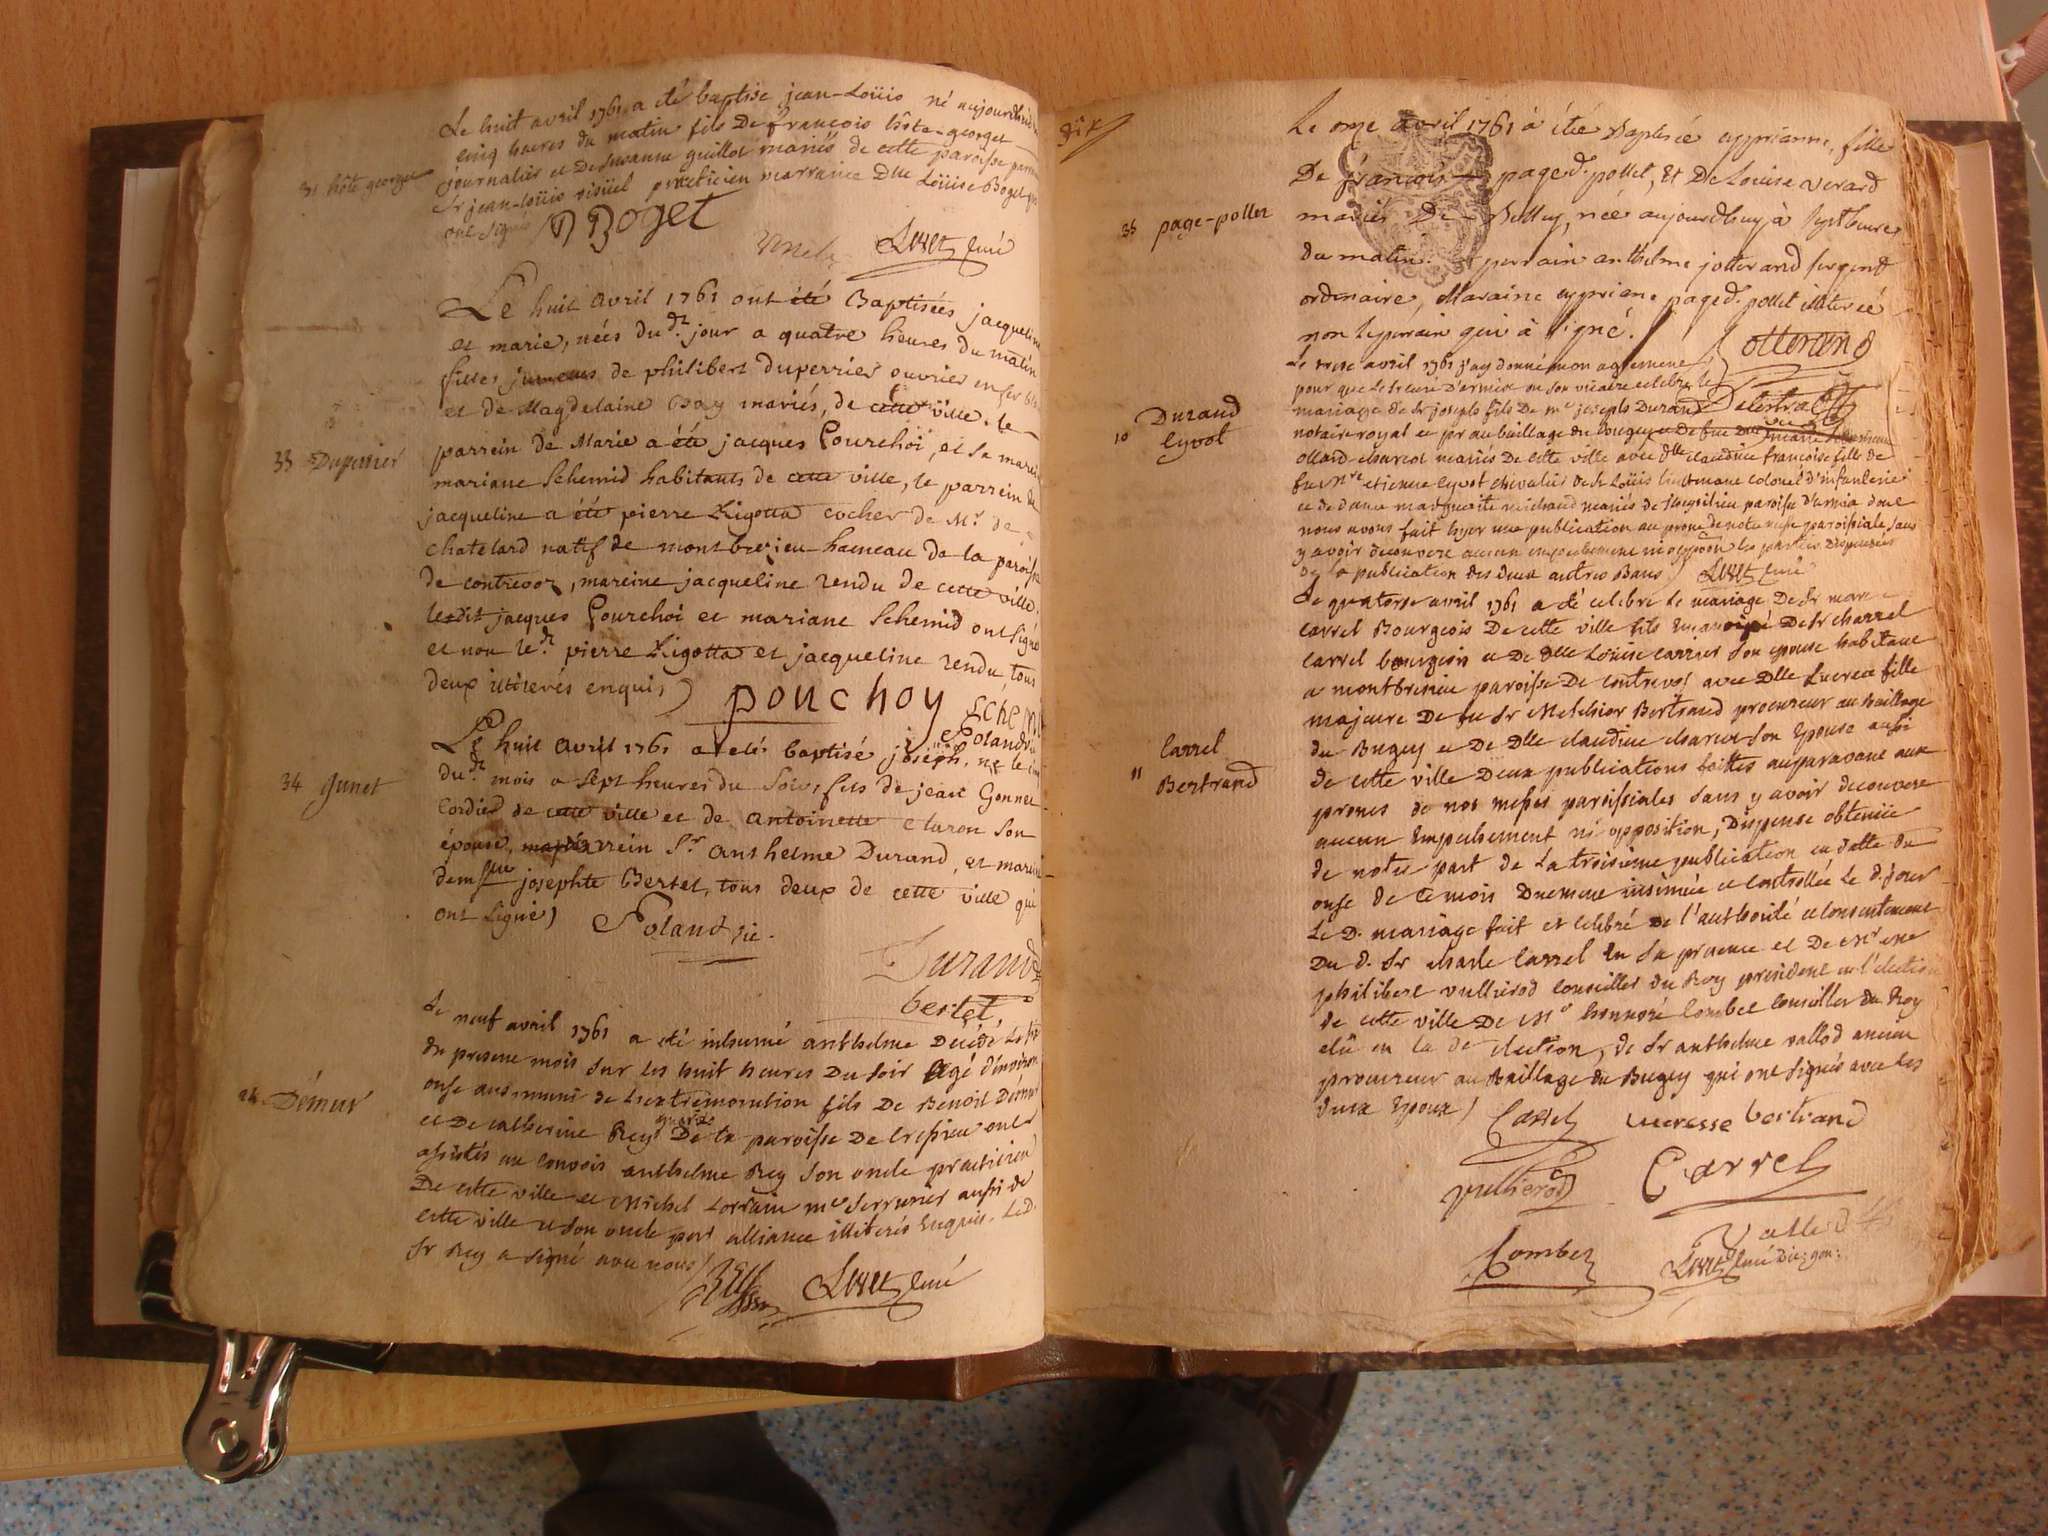 Le huit avril 1761 a été baptisé jean-Loüis né aujourdhui
cinq heures du matin fils De françois hôte-george
journalier et De Susanne guillot mariés de cette paroisse
Sr jean-Loüis practicien marraine Dlle Loüise Boget
ont signés
hôte george
Boget
Livet curé
Le huit avril 1761 ont été Baptisées jacqueline
et marie, nées dud. jour a quatre heures du matin
filles jumeaux de philibert duperrier ouvrier en fer
et de Magdelaine mariés, de cette ville. le
33 Duperrier
parrein de Marie a été jacques Pourchoi, et sa mareine
mariane Schemid habitants de cette ville, le parrein de
jacqueline a été pierre Rigotta cocher de Mr. de
chatelard natif de montbrezieu hameau de la paroisse
de contrevoz, mareine jacqueline rendu de cette ville.
ledit jacques Pourchoi et mariane Schemid ont signé
et non led. pierre Rigotta et jacqueline rendu, tous
deux illiterés enquis)
pouchoy
Schemi
Poland
Le huit avril 1761 a eté baptisé joseph, né le
dud. mois a sept heures du soir, fils de jean Gonnet
34 gunet
Cordier de cette ville et de antoinette Claron son
épouse, parrein Sr anthelme Durand, et mareine
demslle josephte Bertet, tous deux de cette ville qui
ont signé)
Poland
Durand
bertet
Le neuf avril 1761 a eté inhumé anthelme Décédé le
du present mois sur les huit heures Du soir agé d'environ
onse ans muni de l'extremonction fils De Benoit Démur
24 Démur
et De catherine Rey De la paroisse De Cressieu ont
assistés au convois anthelme Rey son oncle practicien
De cette ville et Michel Lorrain me Serrurier aussi de
cette ville et son oncle par alliance illiterés Enquis. Led.
Sr Rey a signé avec nous)
Livet curé
dix
Le onze avril 1761 à étée Baptisée cyprianne, fille
De françois page d. pollet, Et De Louise verard
35 page-pollet
mariés De Belley, née aujourdhuy à sept heures
du matin. perrain anthelme jotterand sergent
ordinaire, Maraine cypriane page d. pollet illiterée
non le perrain qui à signé.
jotterand
Le trese avril 1761 j'ay donné mon agrement
pour que le sr curé D'armix ou son vicaire celebre le
mariage de Sr joseph fils De me joseph Durand
Durand
10 Cyvot
notaire royal et pr au baillage du bugey et de
ollard-charcot mariés De cette ville avec Dlle claudine françoise fille de
feu Mre etienne Cyvot chevalier de St Loüis lieutenant colonel d'infanterie
et de dame marguerite michaud mariés de paroisse d'armix dont
nous avons fait hyer une publication au prone de notre messe paroissiale sans
y avoir decouvert aucun empechement ni oppoôn les parties Dispensées
de la publication des deux autres Bans)
Livet curé
Le quatorse avril 1761 a été celebré le mariage De Sr marc
Carrel Bourgeois De cette ville fils De Sr charle
Carrel bourgeois et De Dlle Loüise carrier son epouse habitant
a montbresieu paroisse De Contrevoz avec Dlle Lucrece fille
majeure De feu Sr Melchior Bertrand procureur au baillage
Carrel
11 Bertrand
du Bugey et De Dlle claudine charcot son Epouse aussi
de cette ville Deux publications faittes auparavant aux
prones de nos messes paroissiales sans y avoir decouvert
aucun Empechement ni opposition, Dispense obtenüe
de notre part de la troisieme publication en datte du
onse de ce mois Duement insinuée et controllée le d. jour
Le D. mariage fait et celebré De l'authorité et consentement
Du d. Sr charle Carrel En sa presence et De Mr me
philibert vullierod conseiller du Roy president en l'election
de cette ville De Me honnoré Combet Conseiller du Roy
elû en la de election, de Sr anthelme vallod ancien
procureur au Baillage du Bugey qui ont signés avec les
deux Epoux)
Carrel
lucresse bertrand
vullierod
Carrel
Combet
Vallod
Livet curé